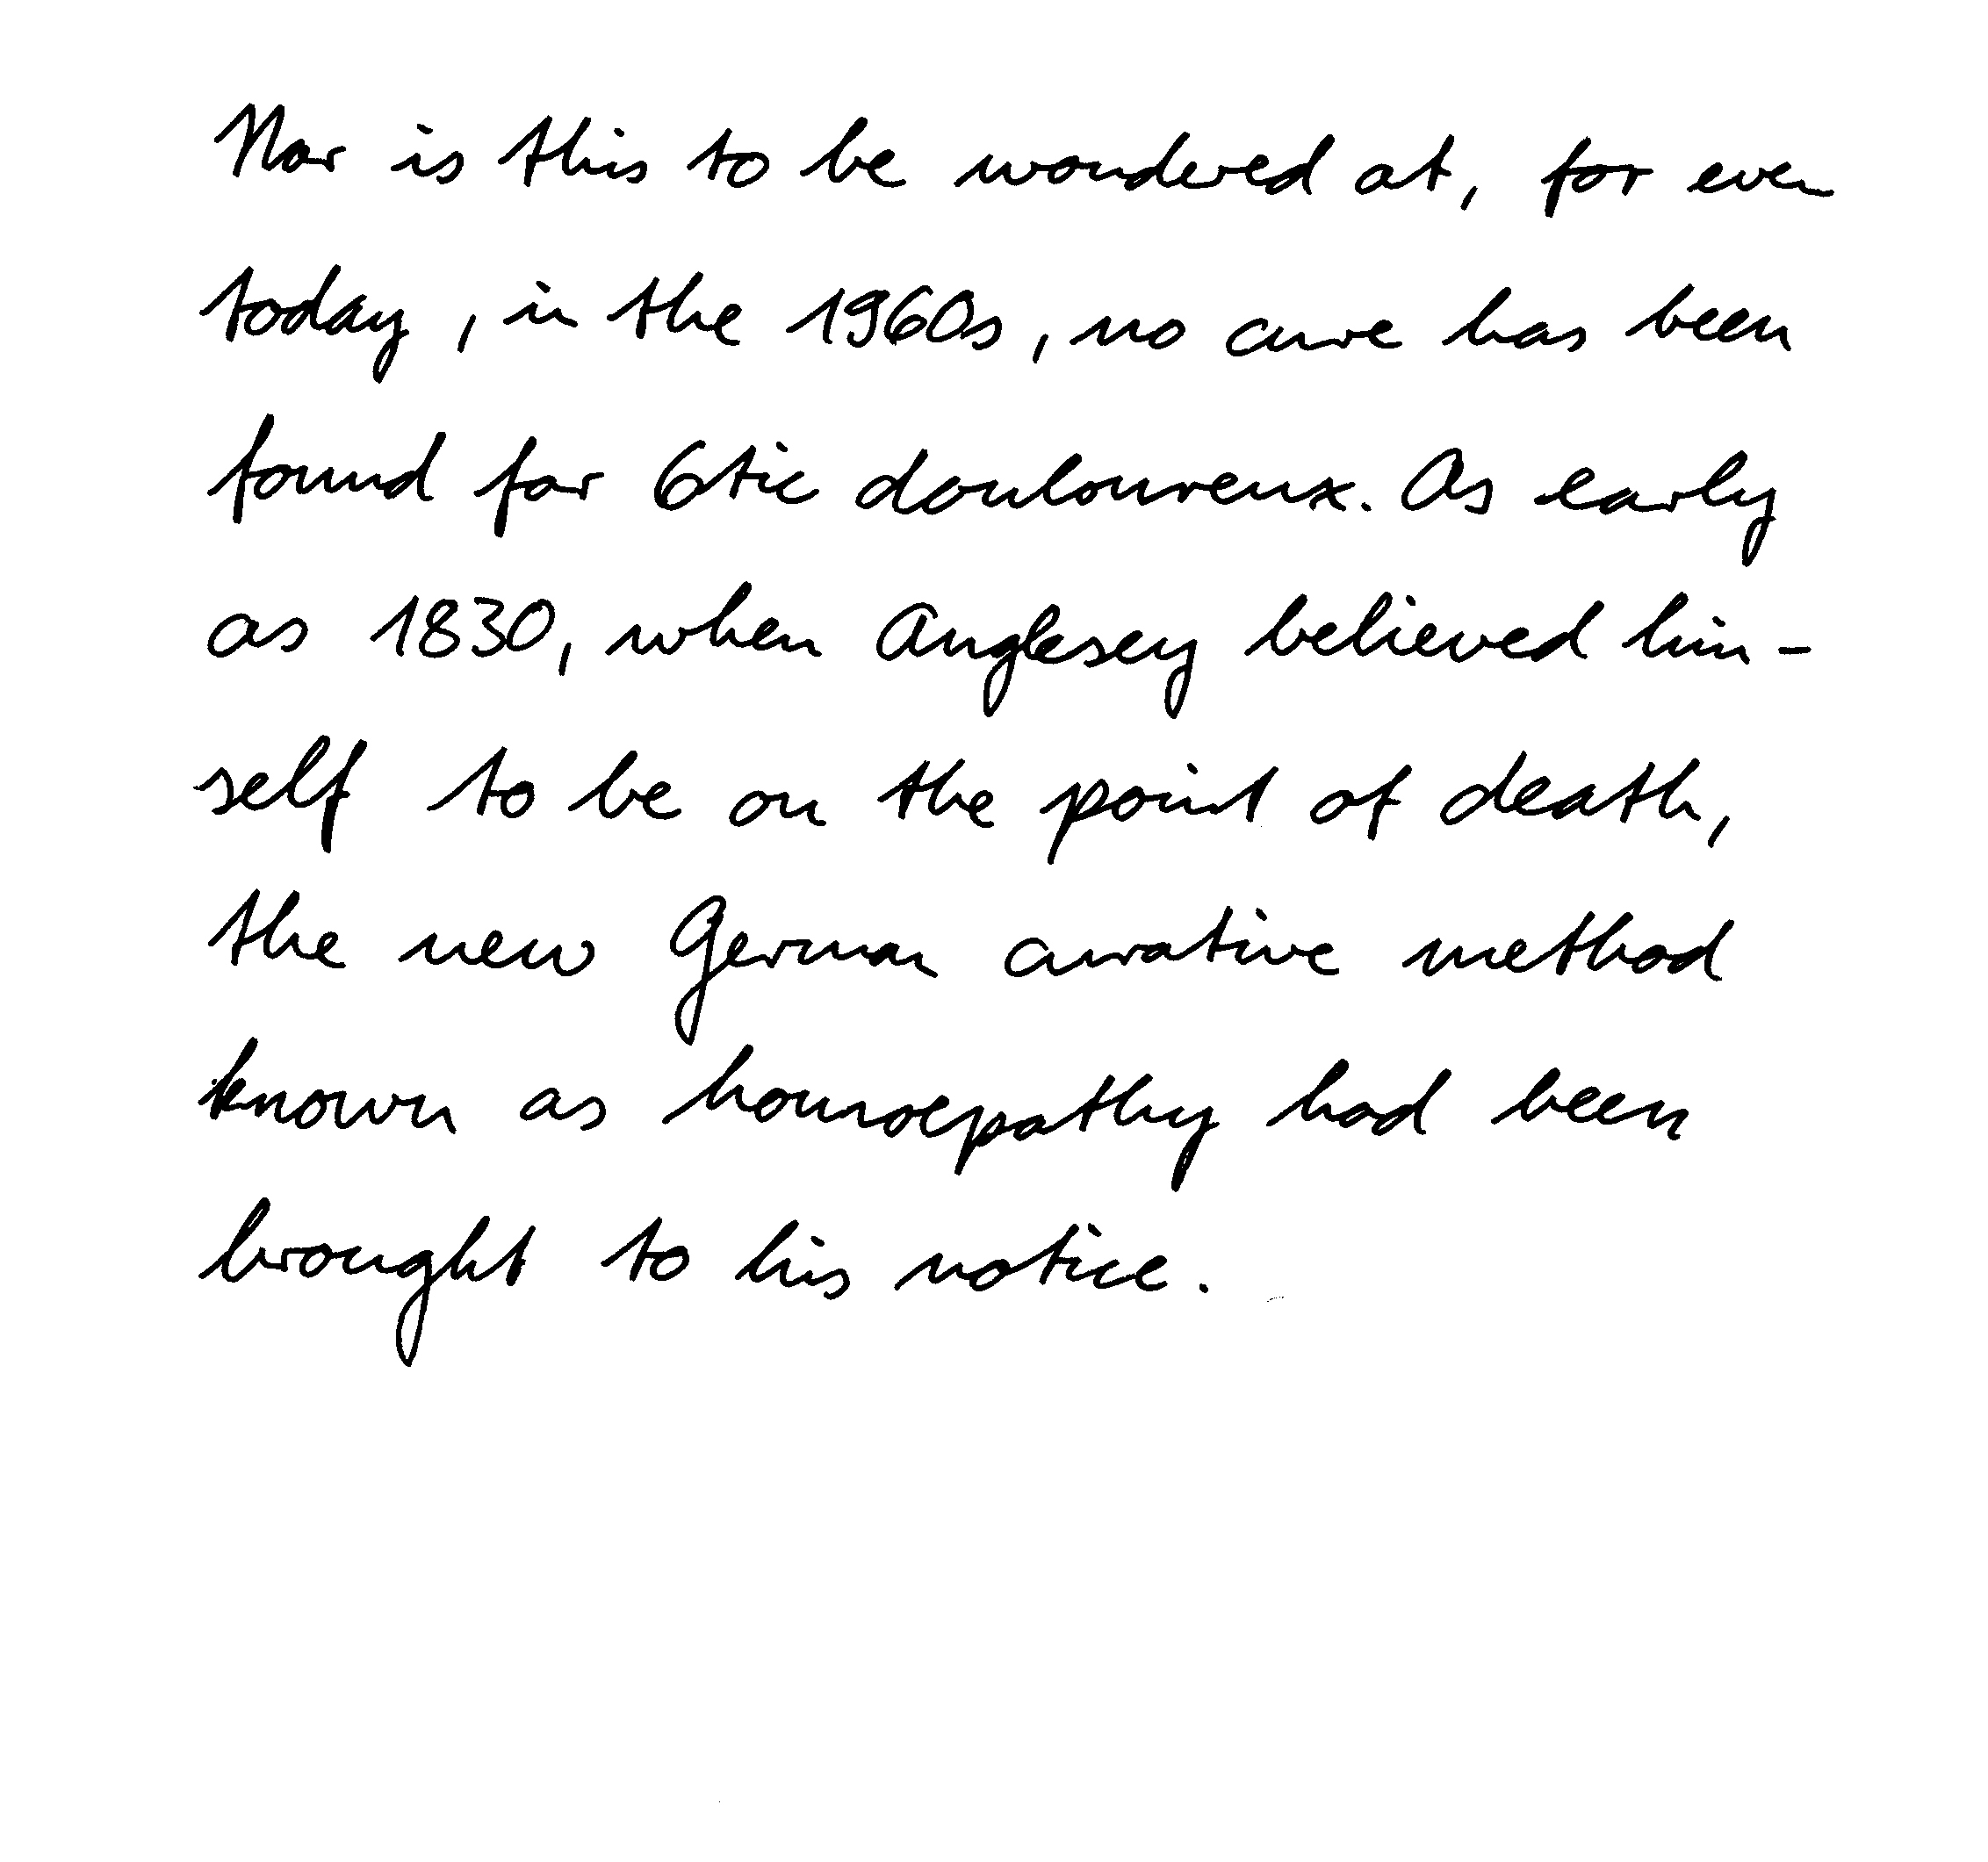 Nor is this to be wondered at, for even
today, in the 1960s, no cure has been
found for 6tic douloureux. As early
as 1830, when Anglesey believed him-
self to be on the point of death,
the new German curative method
known as homoepathy had been
brought to his notice.